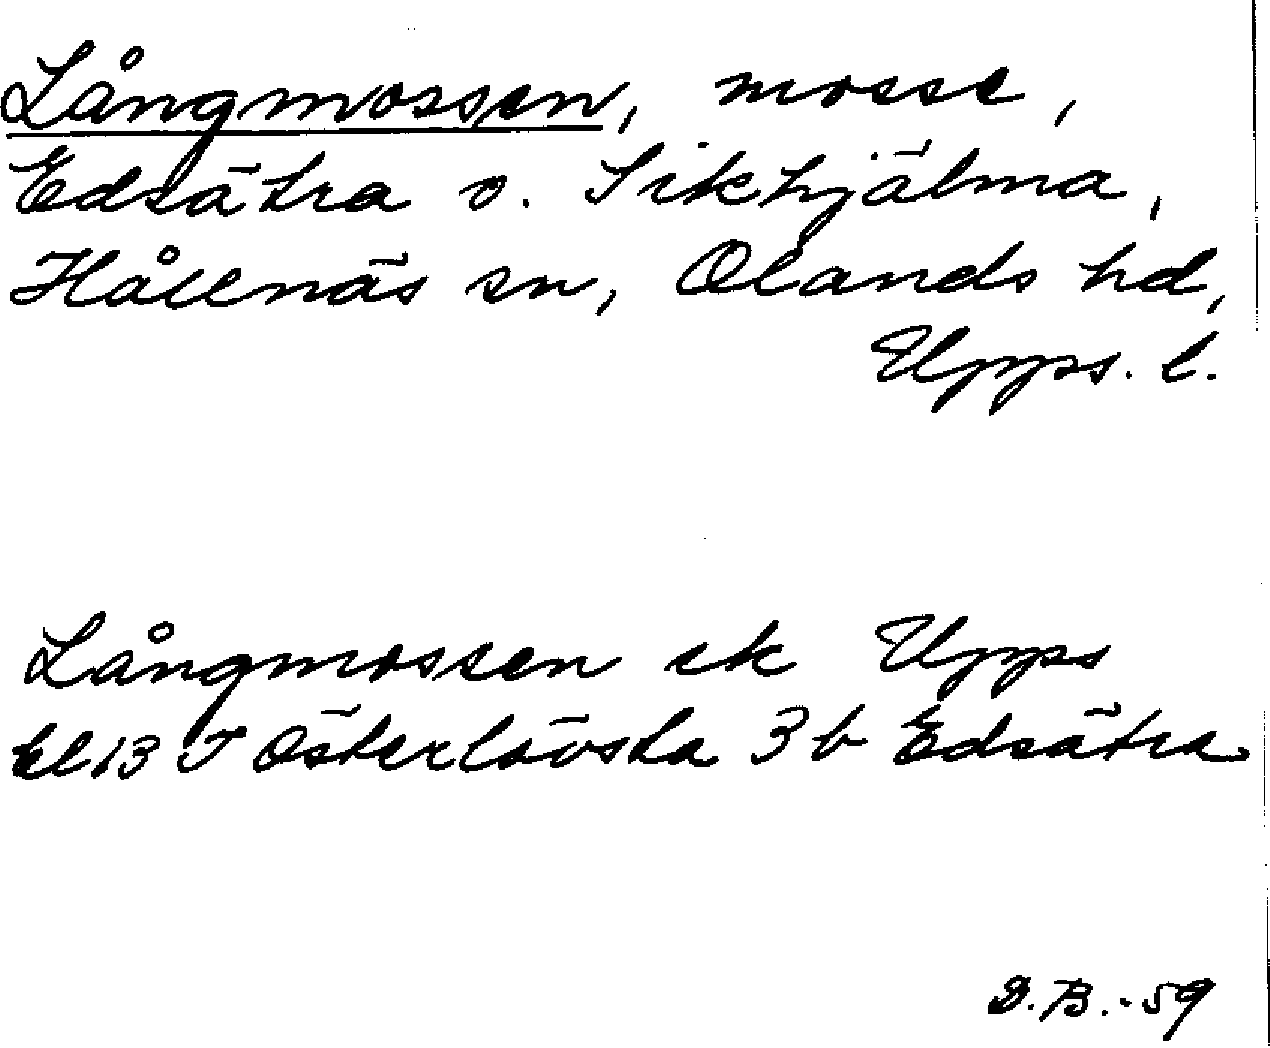 Långmossen, mosse,
Edsätra o. Sikhjälma,
Hållnäs sn, Olands hd,
Upps. l.
Långmossen ek Upps
bl 13 T Österlövsta 3 b Edsätra
D.B. -59